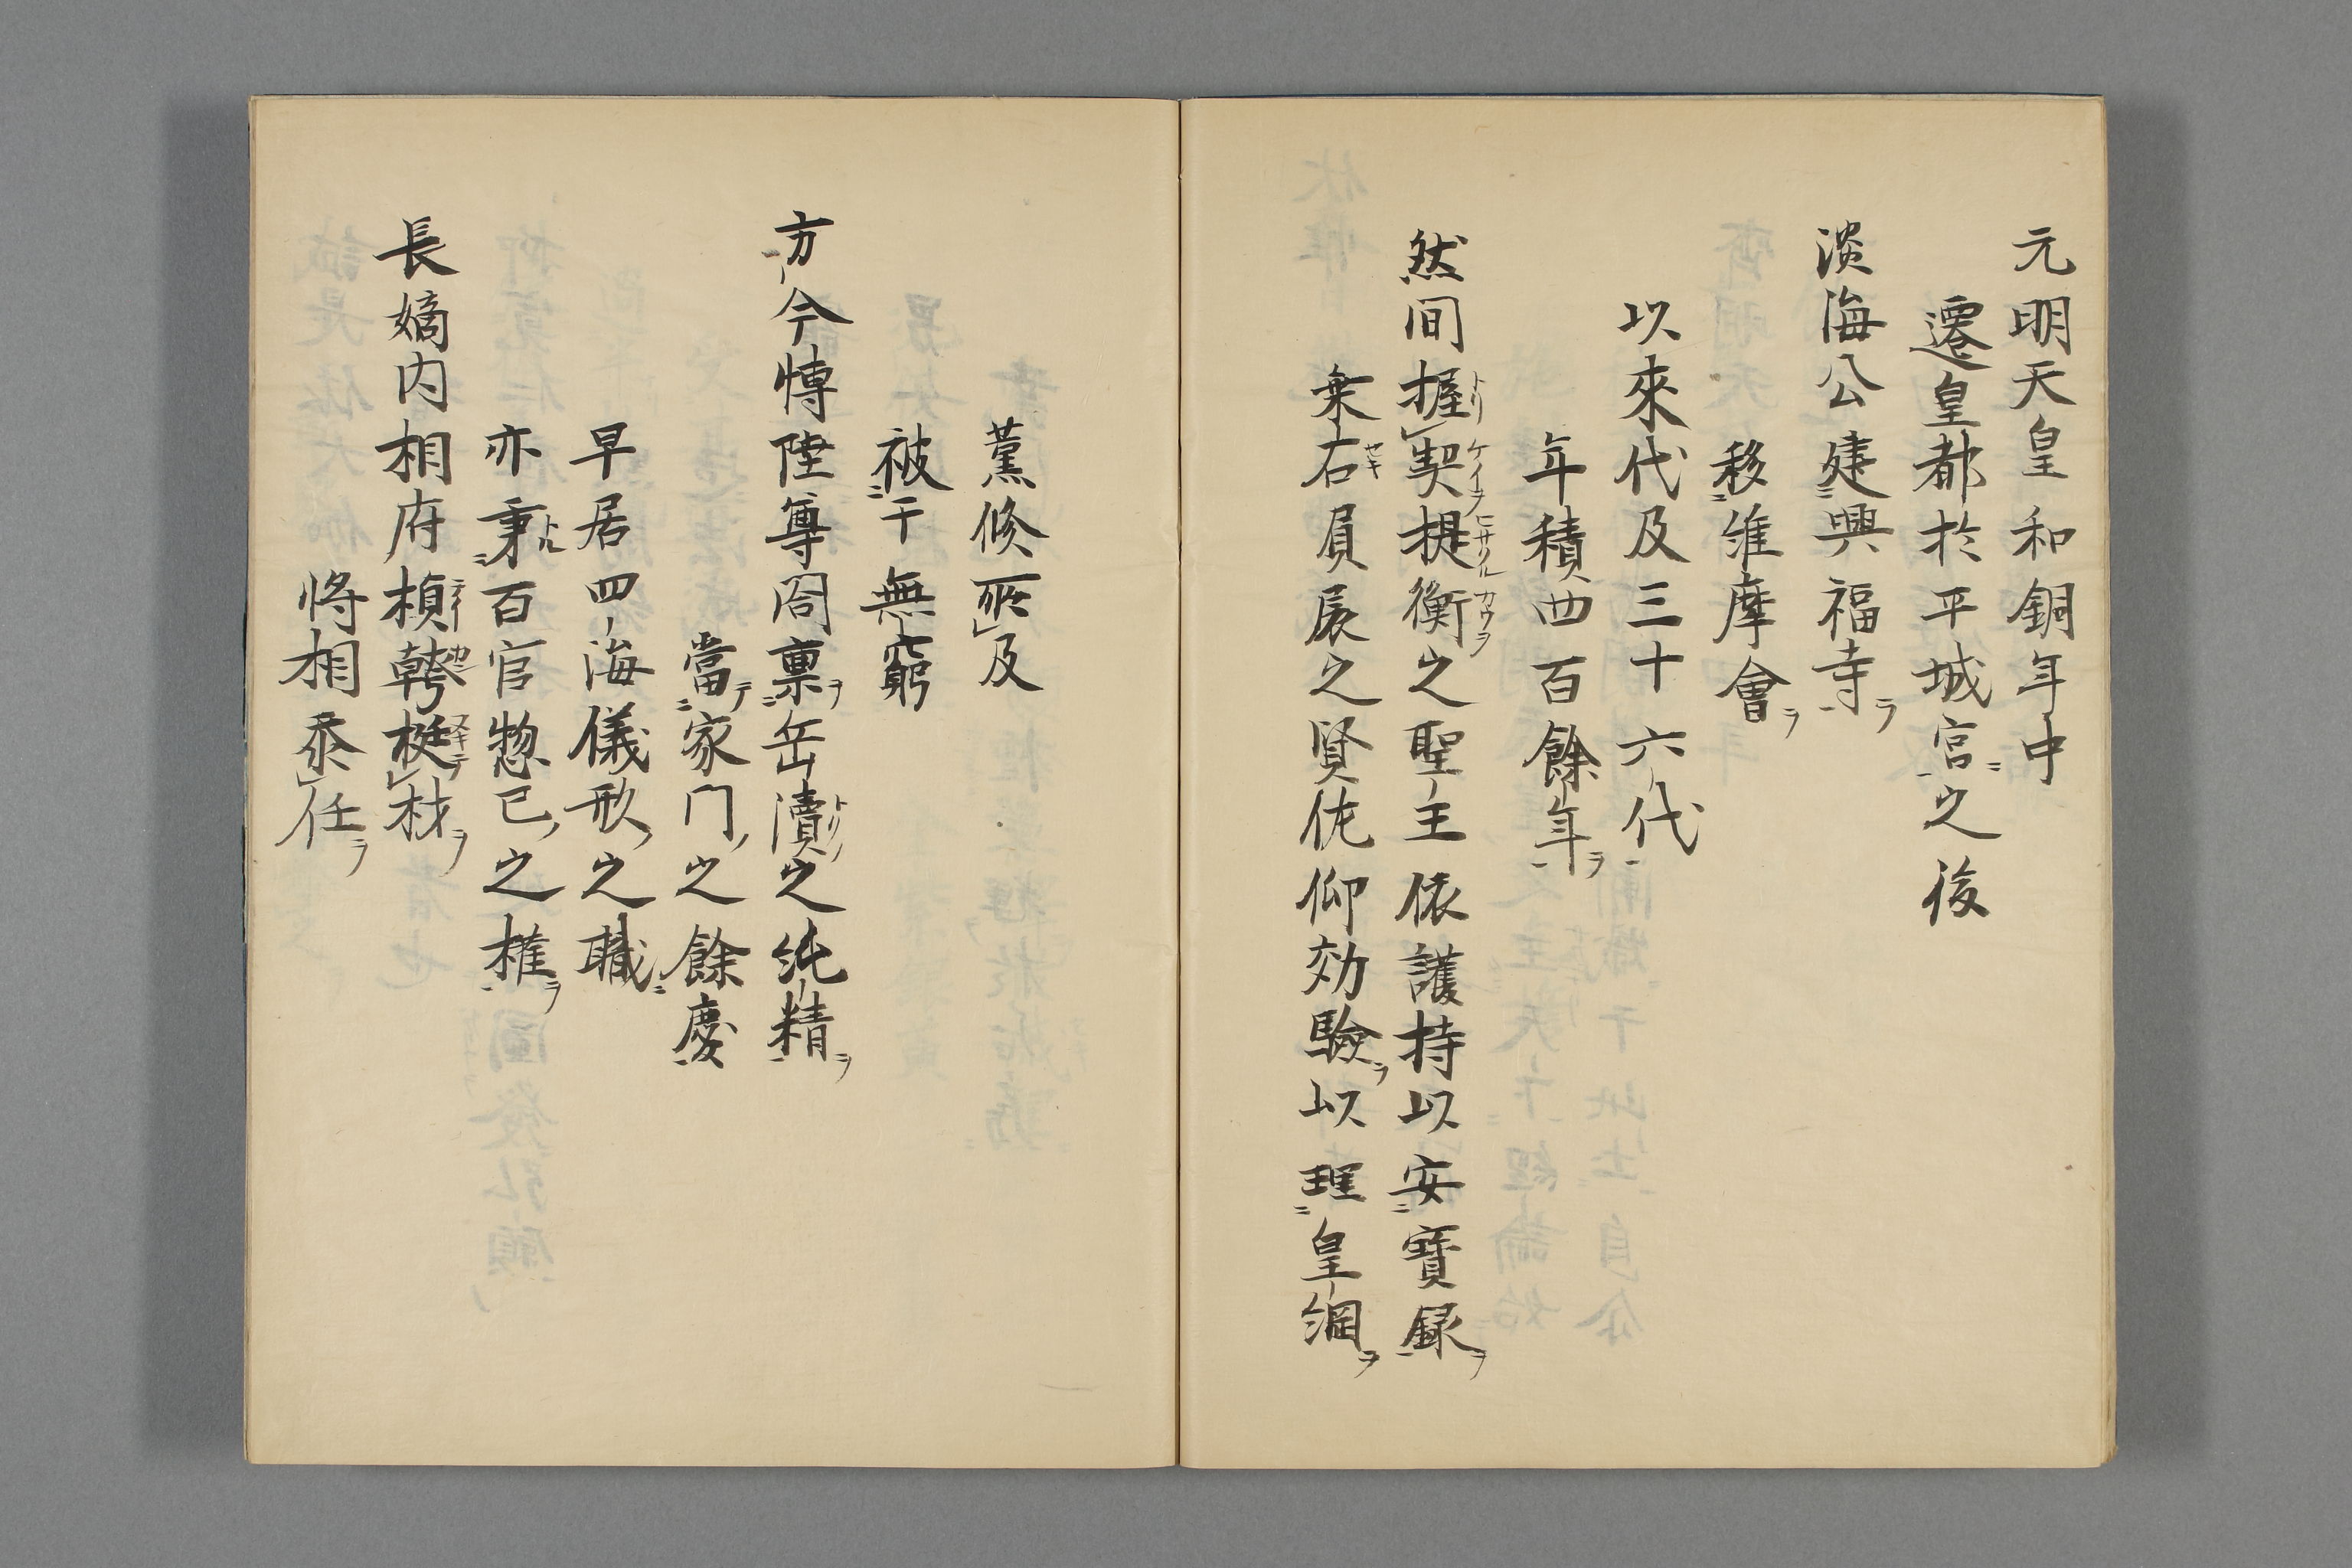 元明天皇和銅年中
遷皇都於平城宮之後
淡海公建興福寺ヲ
移維摩會ヲ
以來代及三十六代
年積四百餘年ヲ
然間握契提衡之聖主依護持以安寶録ヲ
乗石負扆之賢佐仰効驗ヲ以理皇綱ヲ
薫修所及
被于無窮
方今博陸尊閤禀岳瀆之純精ヲ
當家門之餘慶
早居四海儀形之職
亦秉百官惣己之権ヲ
長嫡内相府楨幹梃材ヲ
将相忝任ヲ